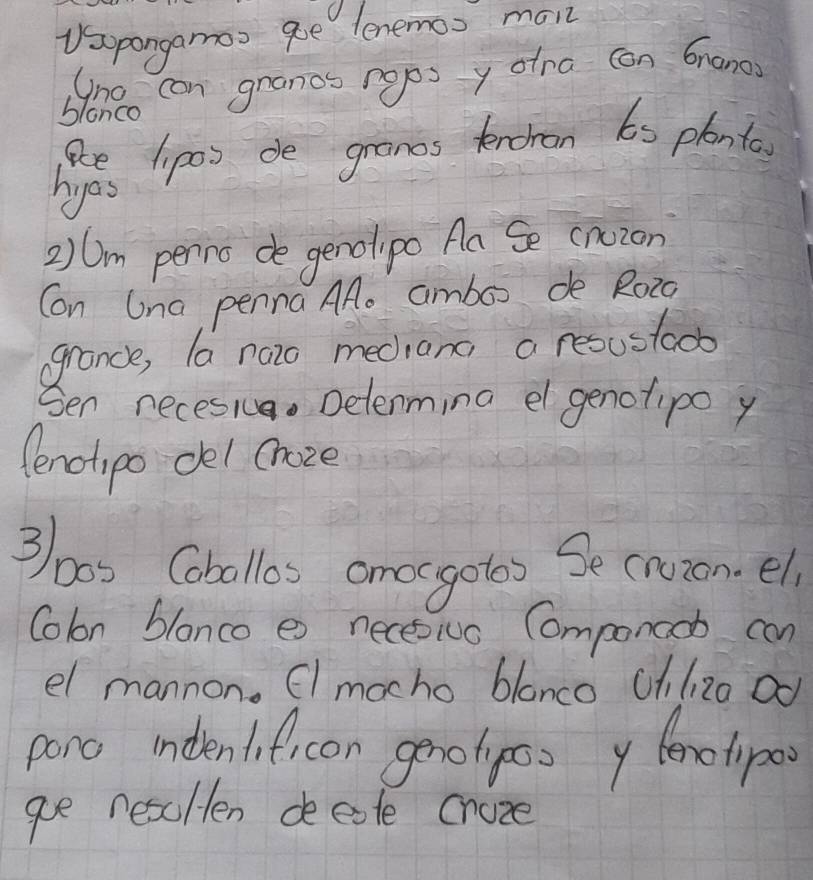 Supongamos que tenemos maiz
Una con granos rojos y otra con Granos
blanco
Que tipos de granos tendran las plantas
hijas
2) Um perro de genotipo Aa Se cruzan
Con Una perra AA. ambos de Raza
grande, la raza mediana a resustado
Ser recesiva. Determina el genotipo y
fenotipo del Cruze
3) Dos Caballos omocigotos Se cruzan. el
Color blanco es recesivo Comparado con
el marron. El macho blanco Utiliza
para indentifican genotipos y fenotipos
que resulten de este Cruze